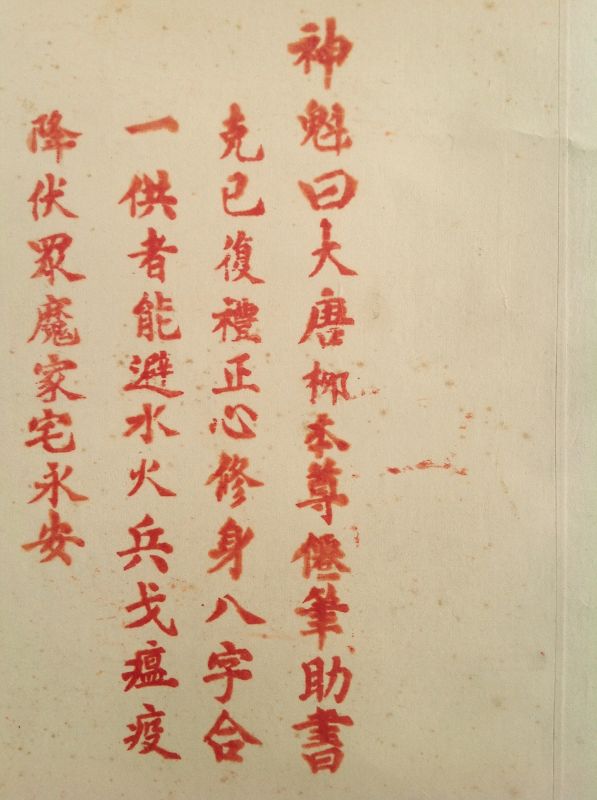 神魁曰大唐柳本尊僊筆助書
克己復禮正心修身八字合
一供者能避水火兵戈瘟疫
降伏眾魔家宅永安